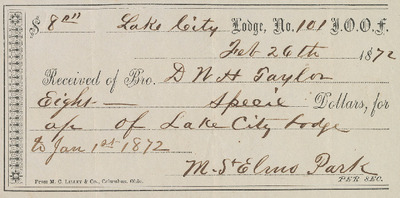 $ 8.00 Lake City Lodge, No. 101 I.O.O.F.
Feb 26th 1872
Received of Bro. D N H Taylor
Eight — Specie Dollars, for
a/c of Lake City Lodge
to Jan 1st 1872
M. St Elmo Park
FROM M. C. LILLEY & Co., Columbus, Ohio. PER SEC.